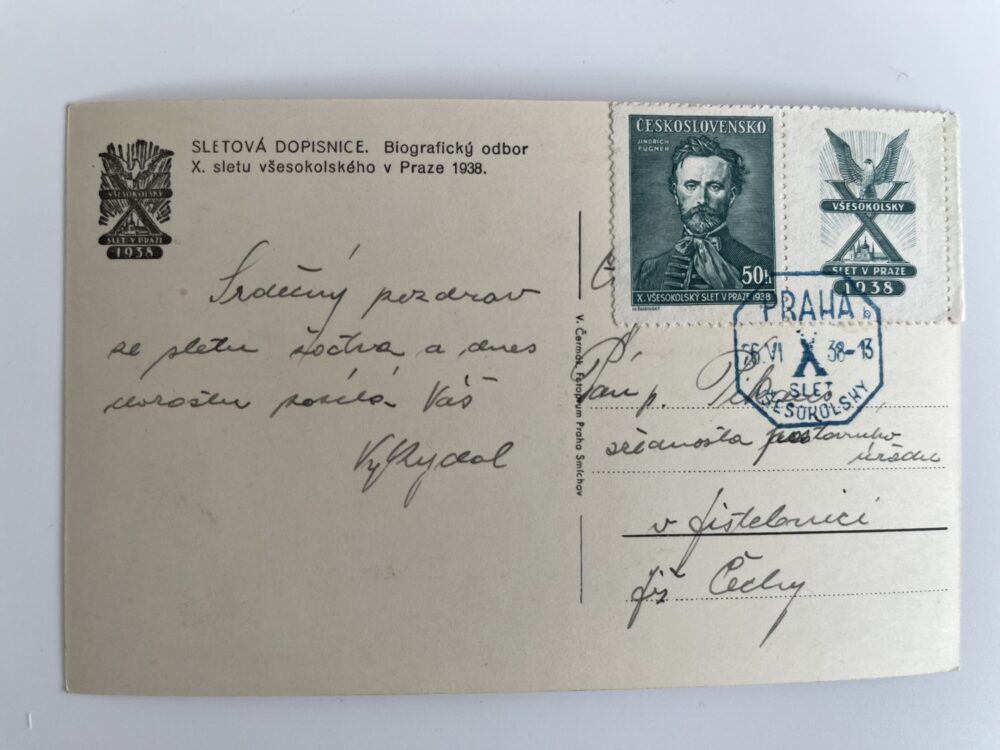 SLETOVÁ DOPISNICE. Biografický odbor
X. sletu všesokolského v Praze 1938.
VŠESOKOLSKÝ
X
SLET V PRAZE
1938
Srdečný pozdrav
se sletu žactva a dnes
dorostu posílá Váš
V. Čermák, Fotogravm Praha Smíchov
ČESKOSLOVENSKO
JINDŘICH
FÜGNER
50h
X. VŠESOKOLSKÝ SLET V PRAZE 1938
VŠESOKOLSKÝ
X
SLET V PRAZE
1938
PRAHA
26 VI X 38-13
SLET
VŠESOKOLSKÝ
Pán p.
přednosta poštovního
úřadu
v Jistebnici
Již Čechy